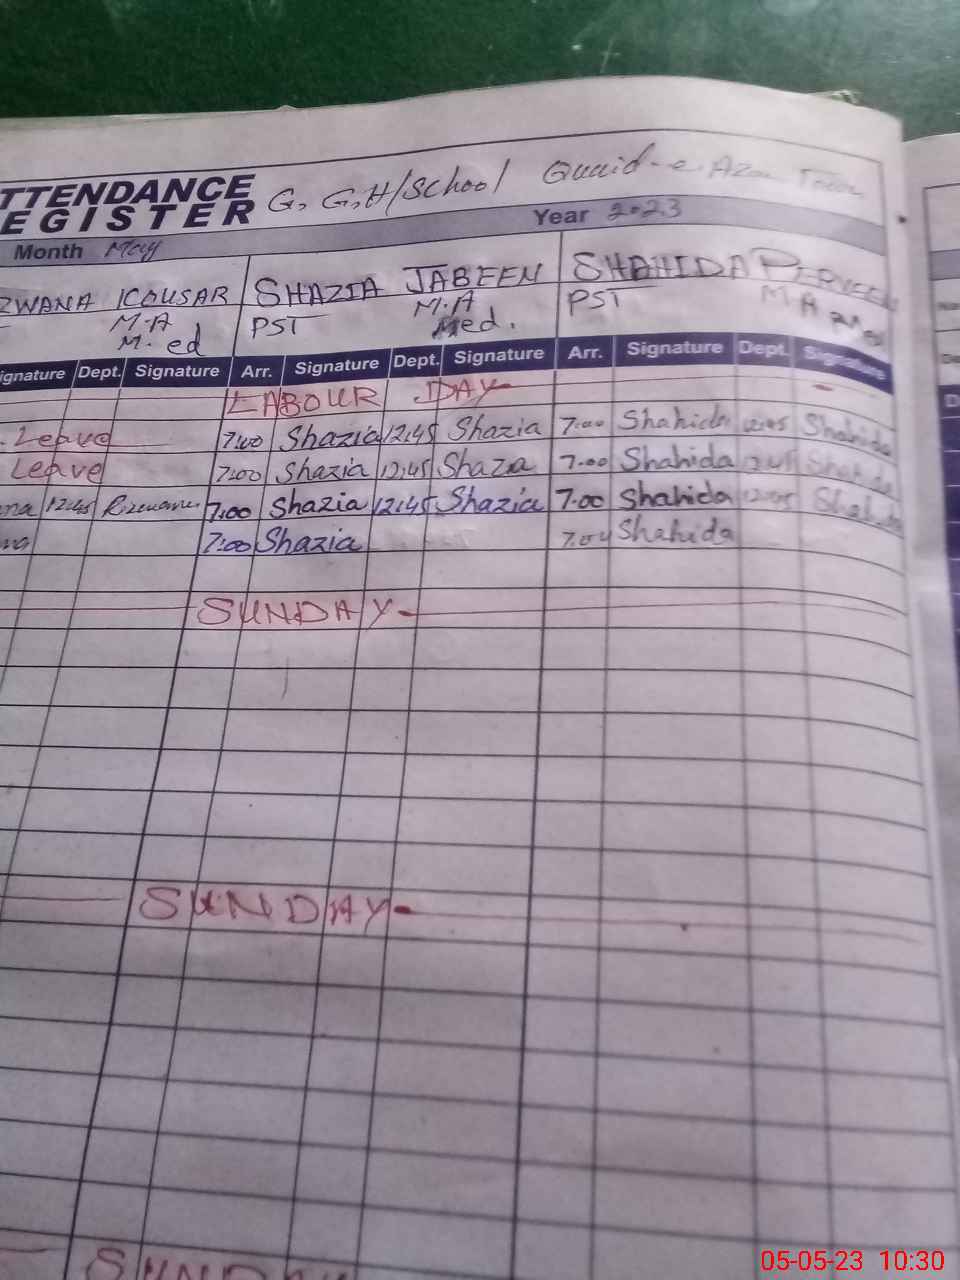 TTENDANCE G.G.H/School Quaid-e-Azam Town
EGISTER
Month May Year 2023
ZWANA KOUSAR SHAZIA JABEEN SHAHIDA PERVEEN
M.A PST M.A PST M.A
M.ed Med. Med
ignature Dept. Signature Arr. Signature Dept. Signature Arr. Signature Dept. Signature
LABOUR DAY
Leave 7:00 Shazia 12:45 Shazia 7:00 Shahida 12:45 Shahida
Leave 7:00 Shazia 12:45 Shaza 7.00 Shahida 12:45 Shahida
na 12:45 Rizwana 7:00 Shazia 12:45 Shazia 7.00 Shahida 12:45 Shahida
na 7:00 Shazia Shahida
SUNDAY-
SUNDAY-
SUNDAY
05-05-23 10:30